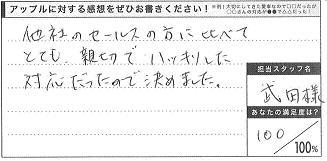 アップルに対する感想をぜひお書きください！
※例）大切にしてきた愛車なので〇〇だったが
〇〇さんの対応が●●で△△だった！
他社のセールスの方に比べて
とても、親切で ハッキリした
対応だったので決めました。
担当スタッフ名
武田様
あなたの満足度は？
100
/100%